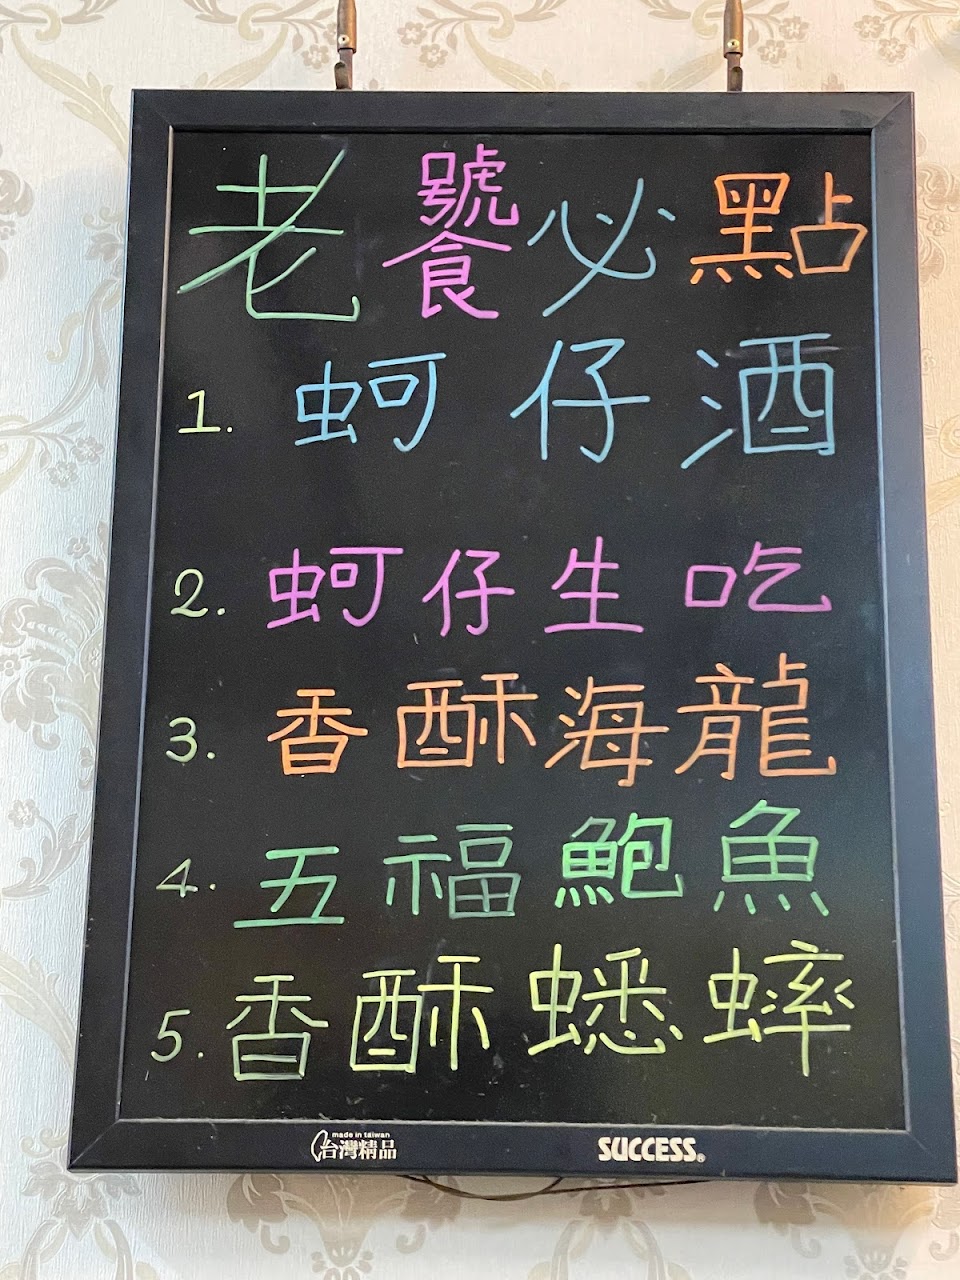 老饕必點
1. 蚵仔酒
2. 蚵仔生吃
3. 香酥海龍
4. 五福鮑魚
5. 香酥蟋蟀
made in taiwan
台灣精品
SUCCESS®